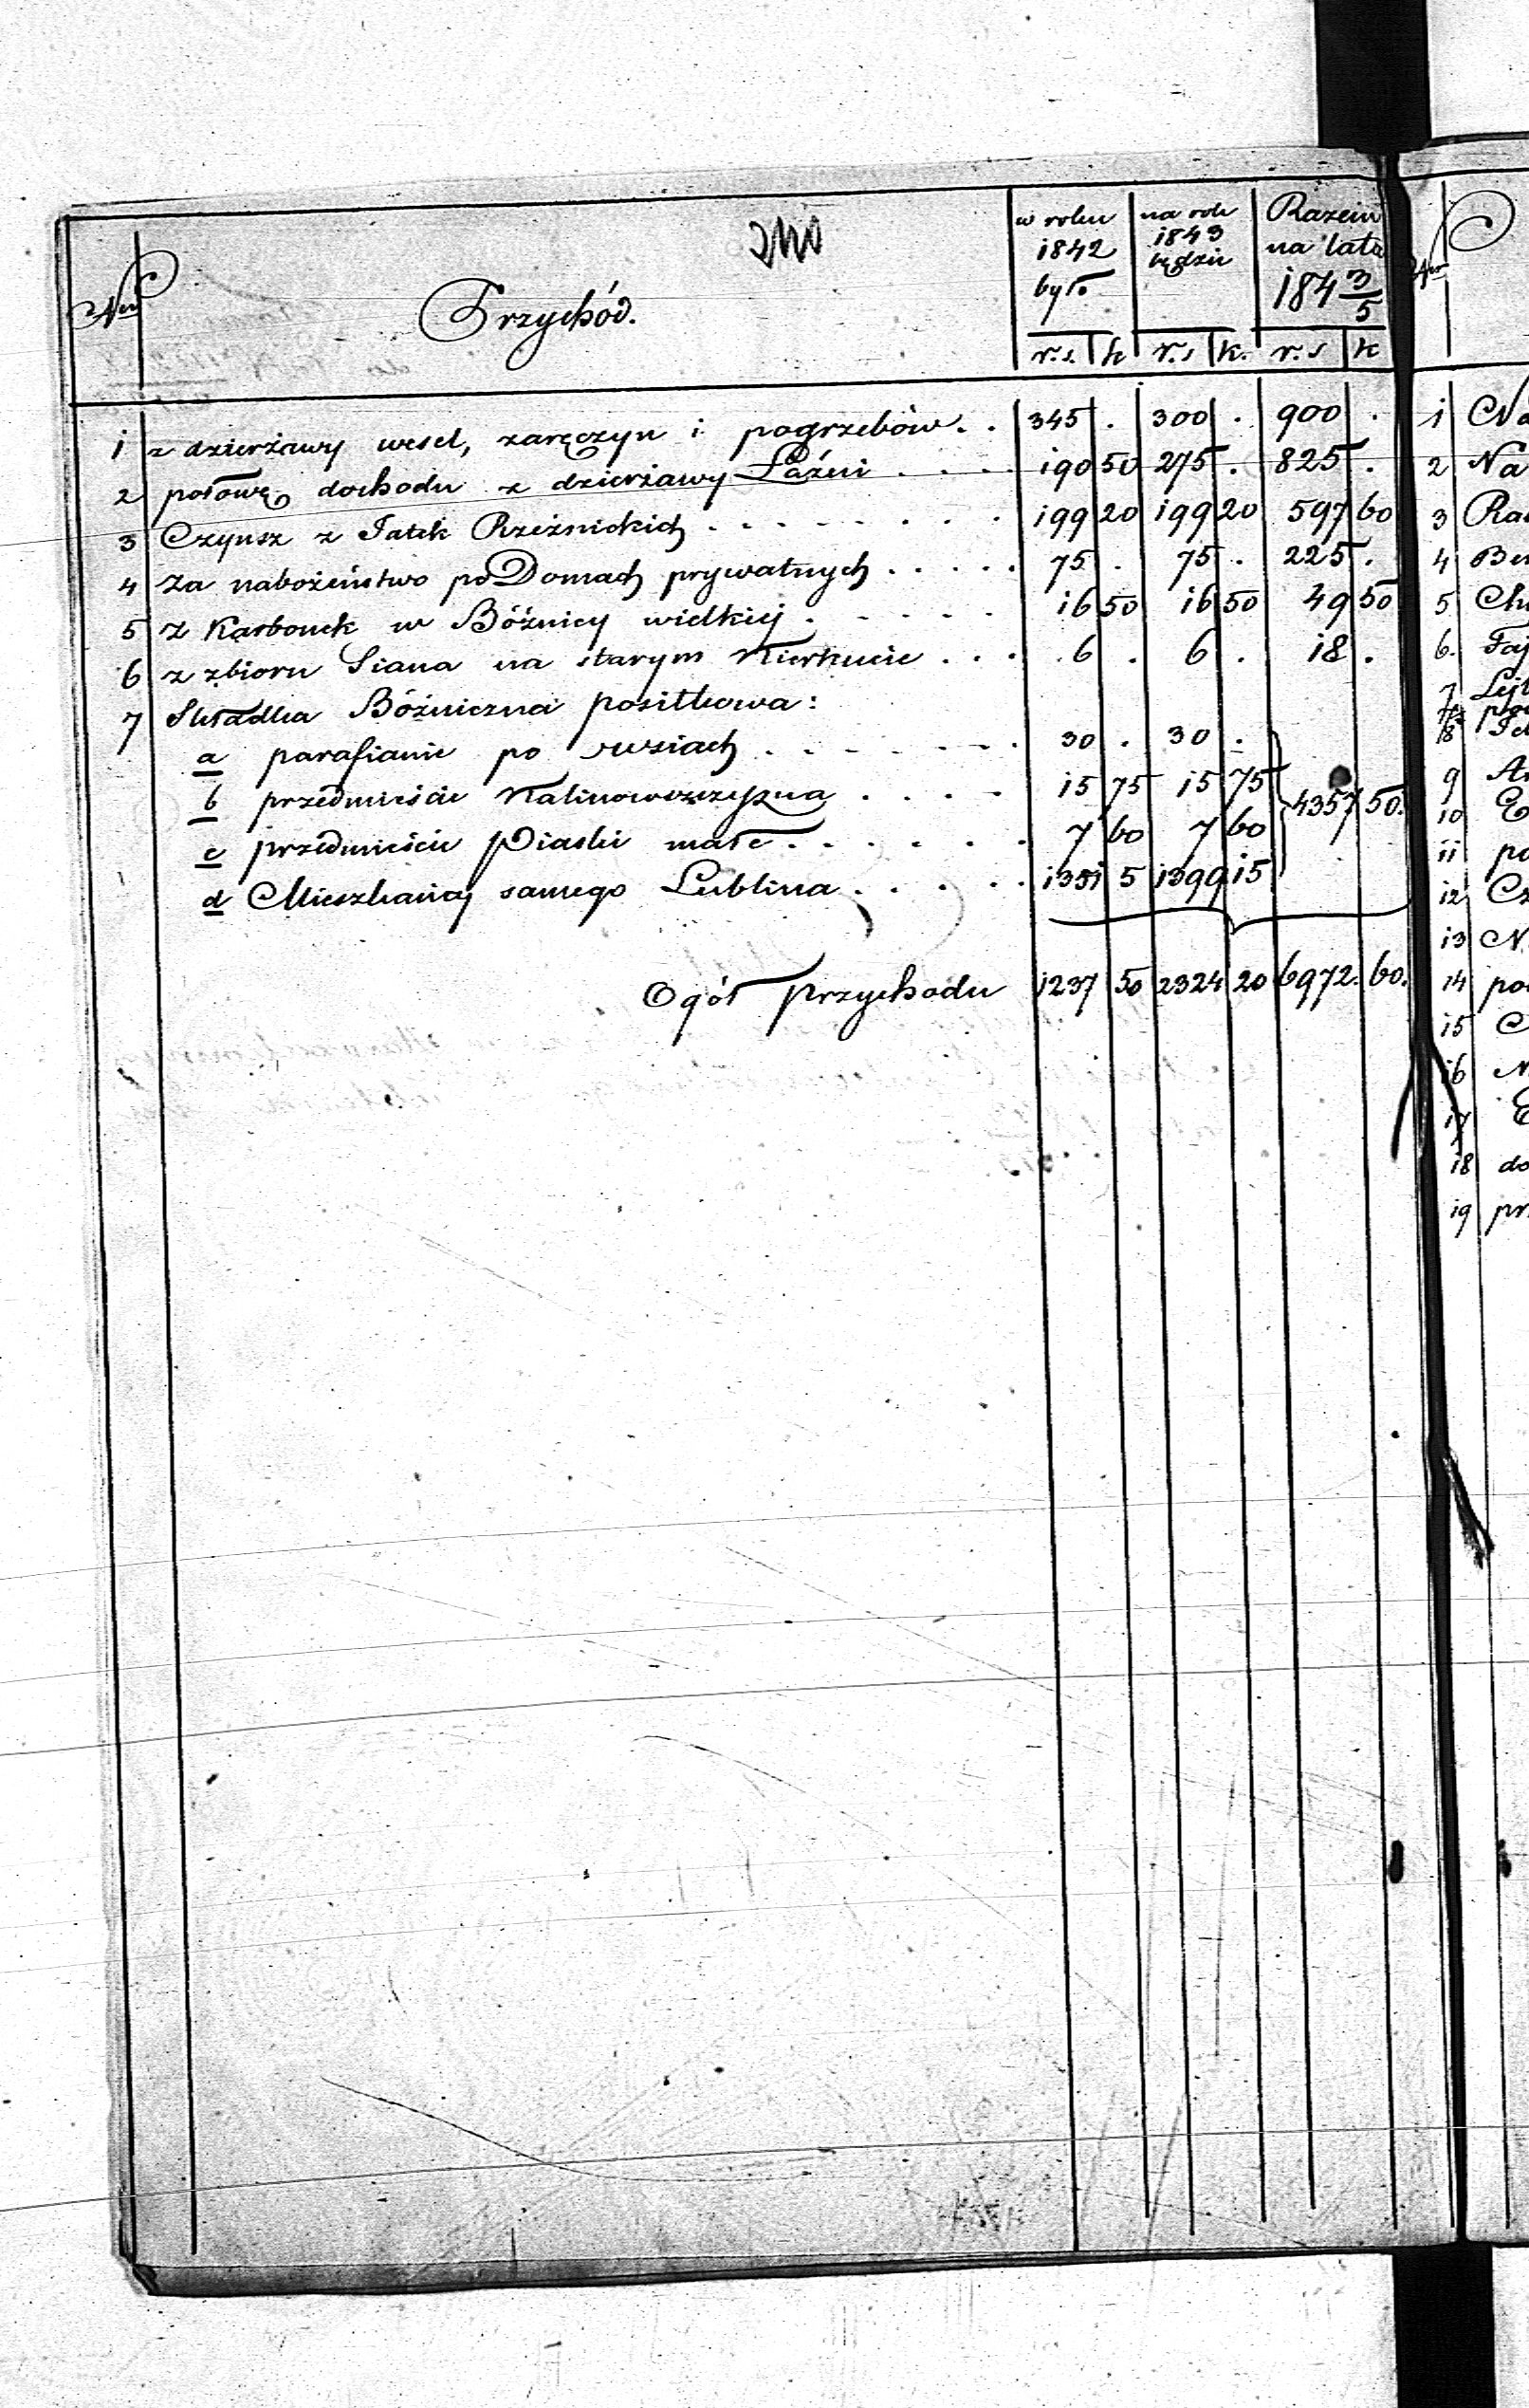 Ner Przychód. w roku 1842 było na rok 1843 będzie Razem na lata 184 3/5
r. s. k r. s k. r. s k
1 z dzierżawy wesel, zaręczyn i pogrzebów. . 345 . 300 . 900 .
2 połowę dochodu z dzierżawy Łaźni . . . . 190 50 275 . 825 .
3 Czynsz z Jatek Rzeźnickich . . . . . . . . 199 20 199 20 597 60
4 za nabożeństwo po Domach prywatnych . . . . . 75 . 75 . 225 .
5 z Karbonek w Bóźnicy wielkiej . . . . . 16 50 16 50 49 50
6 z zbioru Siana na starym Kierkucie . . . 6 . 6 . 18 .
7 Składka Bóźniczna posiłkowa:
a parafianie po wsiach . . . . . . . 30 . 30 .
b przedmieście Kalinowszczyzna . . . . 15 75 15 75 4357 50.
c przedmieście Piaski małe . . . . . . 7 60 7 60
d Mieszkańcy samego Lublina . . . . . 1351 5 1399 15
Ogół przychodu 1237 50 2324 20 6972. 60.
1
2 Na
3
4
5
6.
7
8
9
10
11
12
13
14
15
16
17
18 do
19